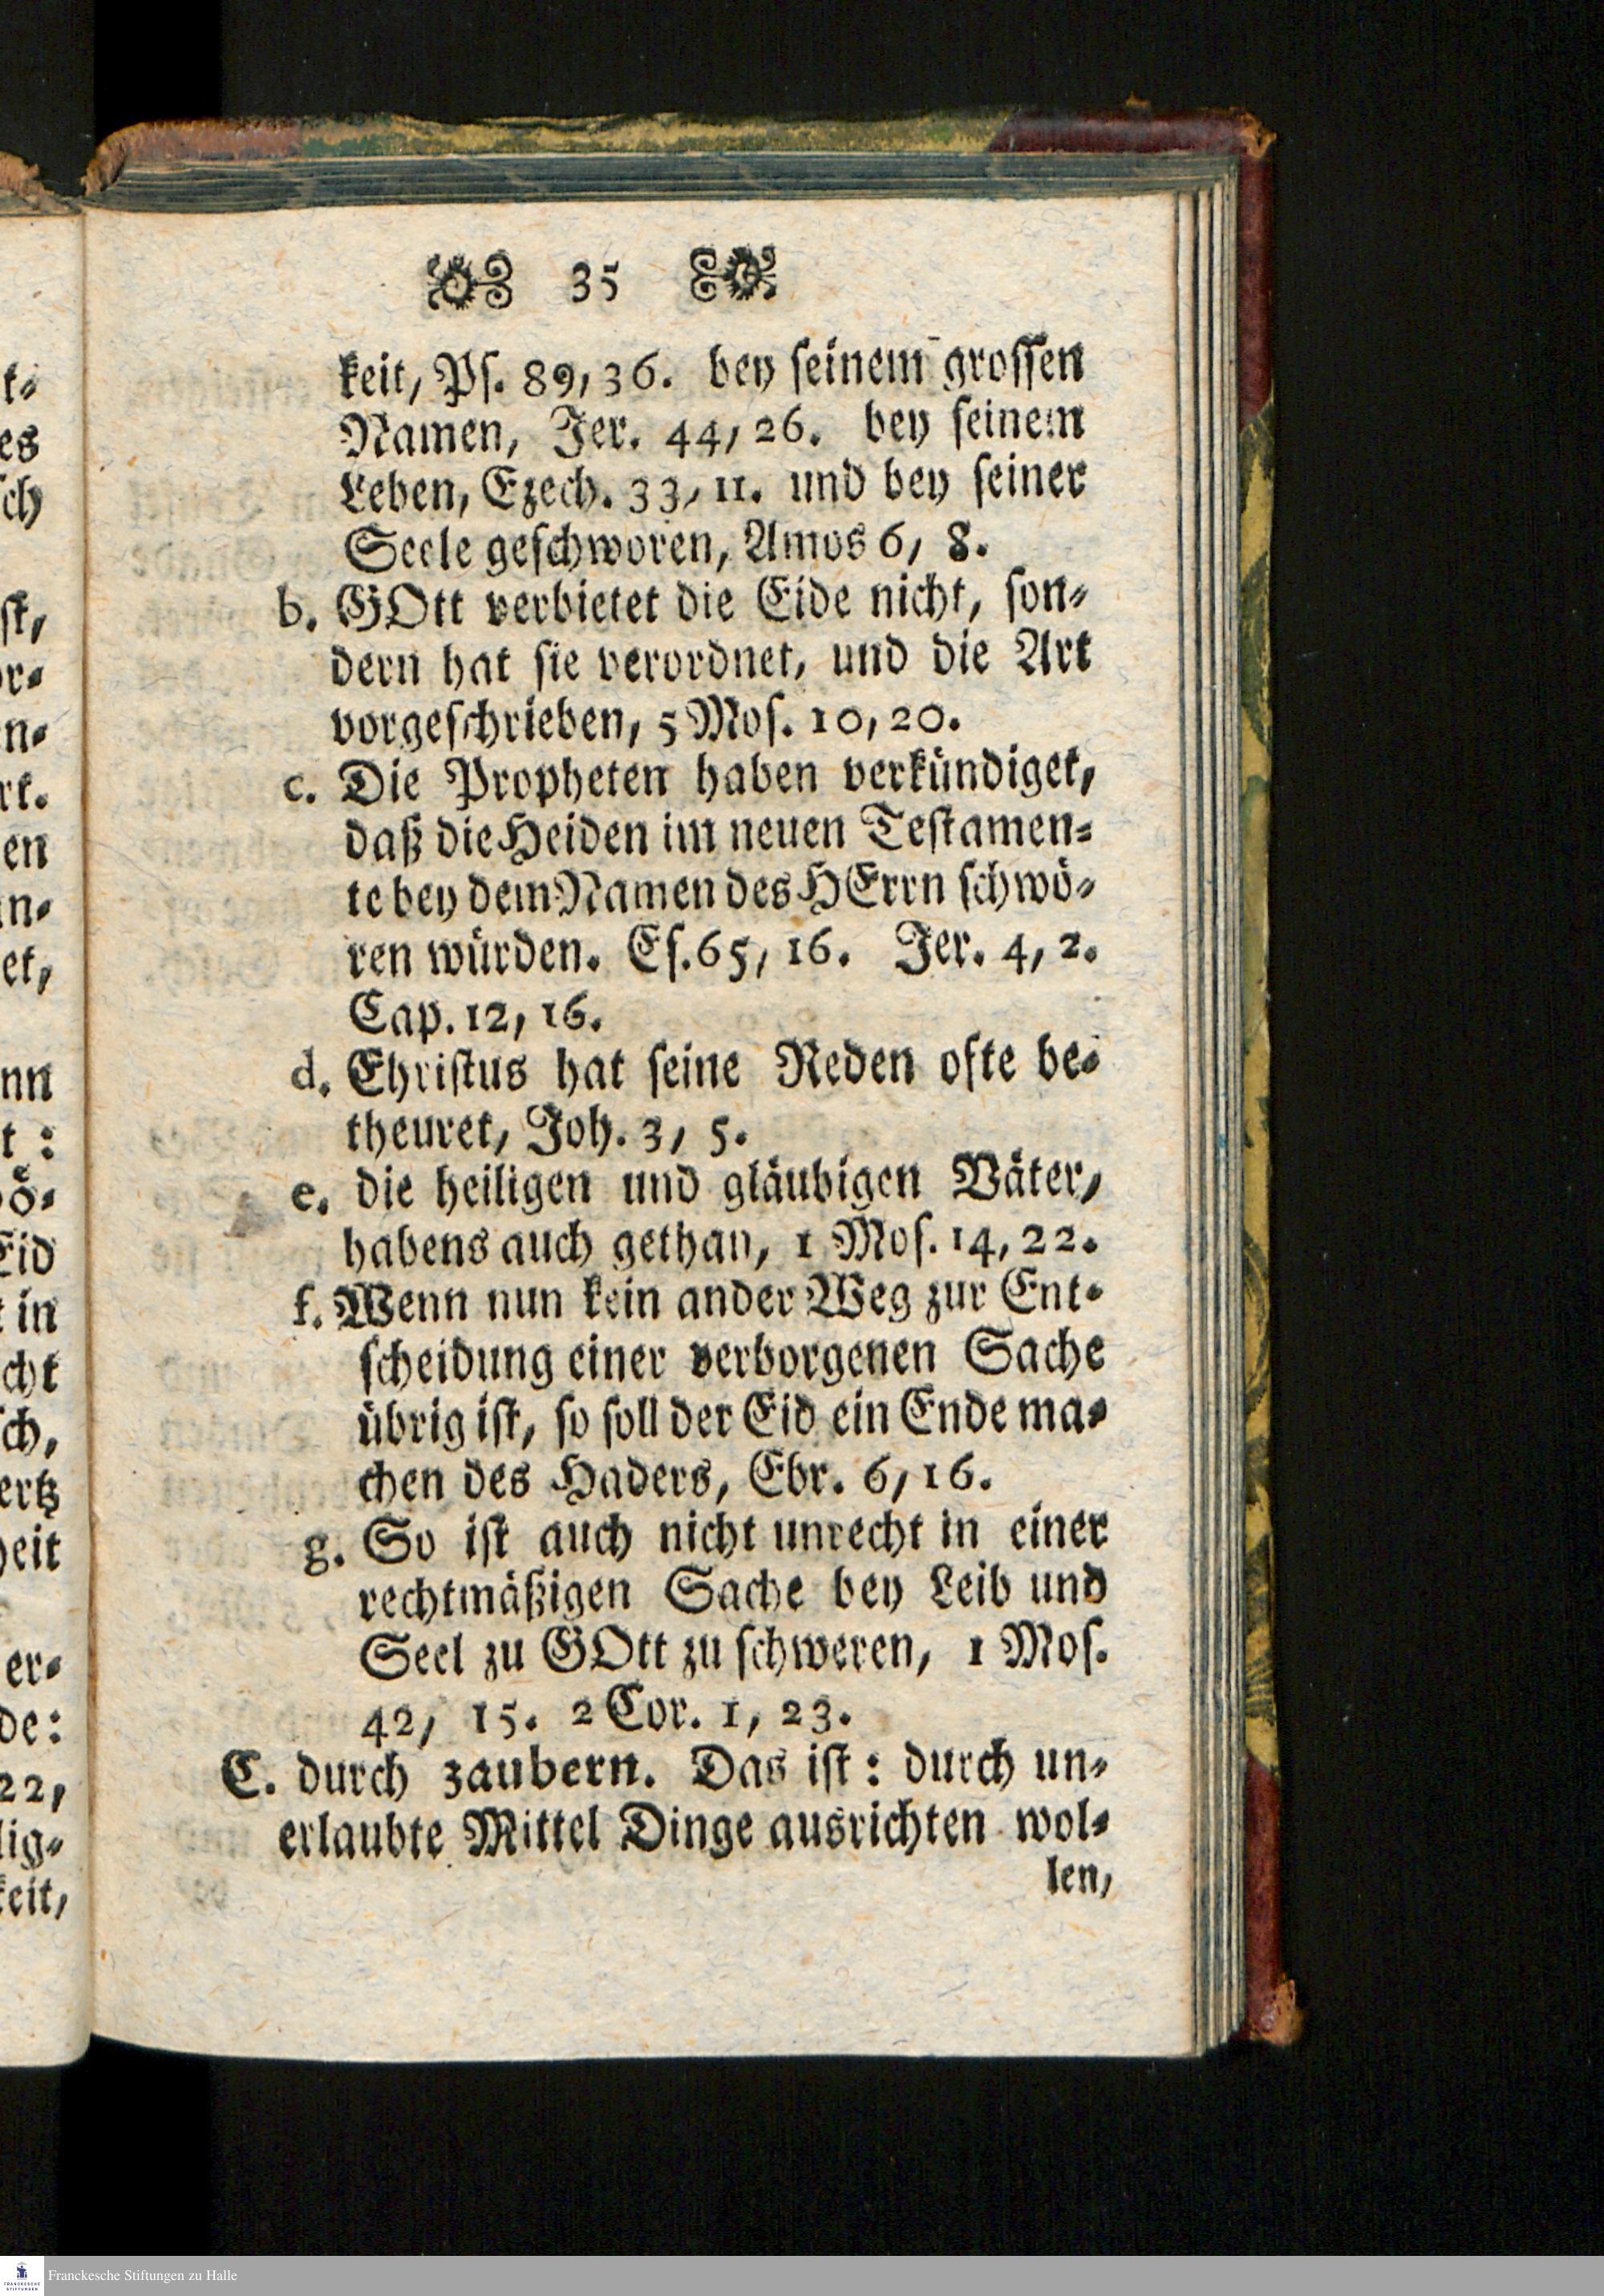 35
keit, Pſ. 89, 36. bey ſeinem groſſen
Namen, Jer. 44, 26. bey ſeinem
Leben, Ezech. 33, 11. und bey ſeiner
Seele geſchworen, Amos 6, 8.
b. GOtt verbietet die Eide nicht, ſon-
dern hat ſie verordnet, und die Art
vorgeſchrieben, 5 Moſ. 10, 20.
c. Die Propheten haben verkündiget,
daß die Heiden im neuen Teſtamen-
te bey dem Namen des HErrn ſchwö-
ren würden. Eſ. 65, 16. Jer. 4, 2.
Cap. 12, 16.
d. Chriſtus hat ſeine Reden ofte be-
theuret, Joh. 3, 5.
e. die heiligen und gläubigen Väter,
habens auch gethan, 1 Moſ. 14, 22.
f. Wenn nun kein ander Weg zur Ent-
ſcheidung einer verborgenen Sache
übrig iſt, ſo ſoll der Eid ein Ende ma-
chen des Haders, Ebr. 6, 16.
g. So iſt auch nicht unrecht in einer
rechtmäßigen Sache bey Leib und
Seel zu GOtt zu ſchweren, 1 Moſ.
42, 15. 2 Cor. 1, 23.
C. durch zaubern. Das iſt: durch un-
erlaubte Mittel Dinge ausrichten wol-
len,
Franckesche Stiftungen zu Halle